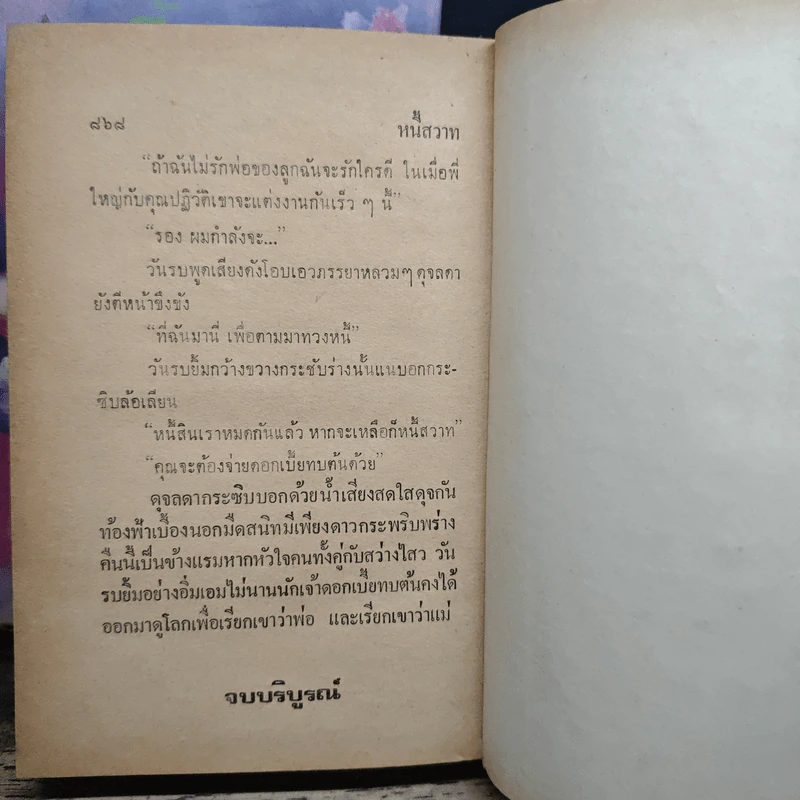 ๘๖๘ หนี้สวาท
“ถ้าฉันไม่รักพ่อของลูกฉันจะรักใครดี ในเมื่อพี่
ใหญ่กับคุณปฏิวัติเขาจะแต่งงานกันเร็ว ๆ นี้”
“รอง ผมกำลังจะ...”
วันรบพูดเสียงดังโอบเอวภรรยาหลวมๆ ดุจลดา
ยังตีหน้าขึงขัง
“ที่ฉันมานี่ เพื่อตามมาทวงหนี้”
วันรบยิ้มกว้างขวางกระชับร่างนั้นแนบอกกระ-
ซิบล้อเลียน
“หนี้สินเราหมดกันแล้ว หากจะเหลือก็หนี้สวาท”
“คุณจะต้องจ่ายดอกเบี้ยทบต้นด้วย”
ดุจลดากระซิบบอกด้วยน้ำเสียงสดใสดุจกัน
ท้องฟ้าเบื้องนอกมืดสนิทมีเพียงดาวกระพริบพร่าง
คืนนี้เป็นข้างแรมหากหัวใจคนทั้งคู่กับสว่างไสว วัน
รบยิ้มอย่างอิ่มเอมไม่นานนักเจ้าดอกเบี้ยทบต้นคงได้
ออกมาดูโลกเพื่อเรียกเขาว่าพ่อ และเรียกเขาว่าแม่
จบบริบูรณ์